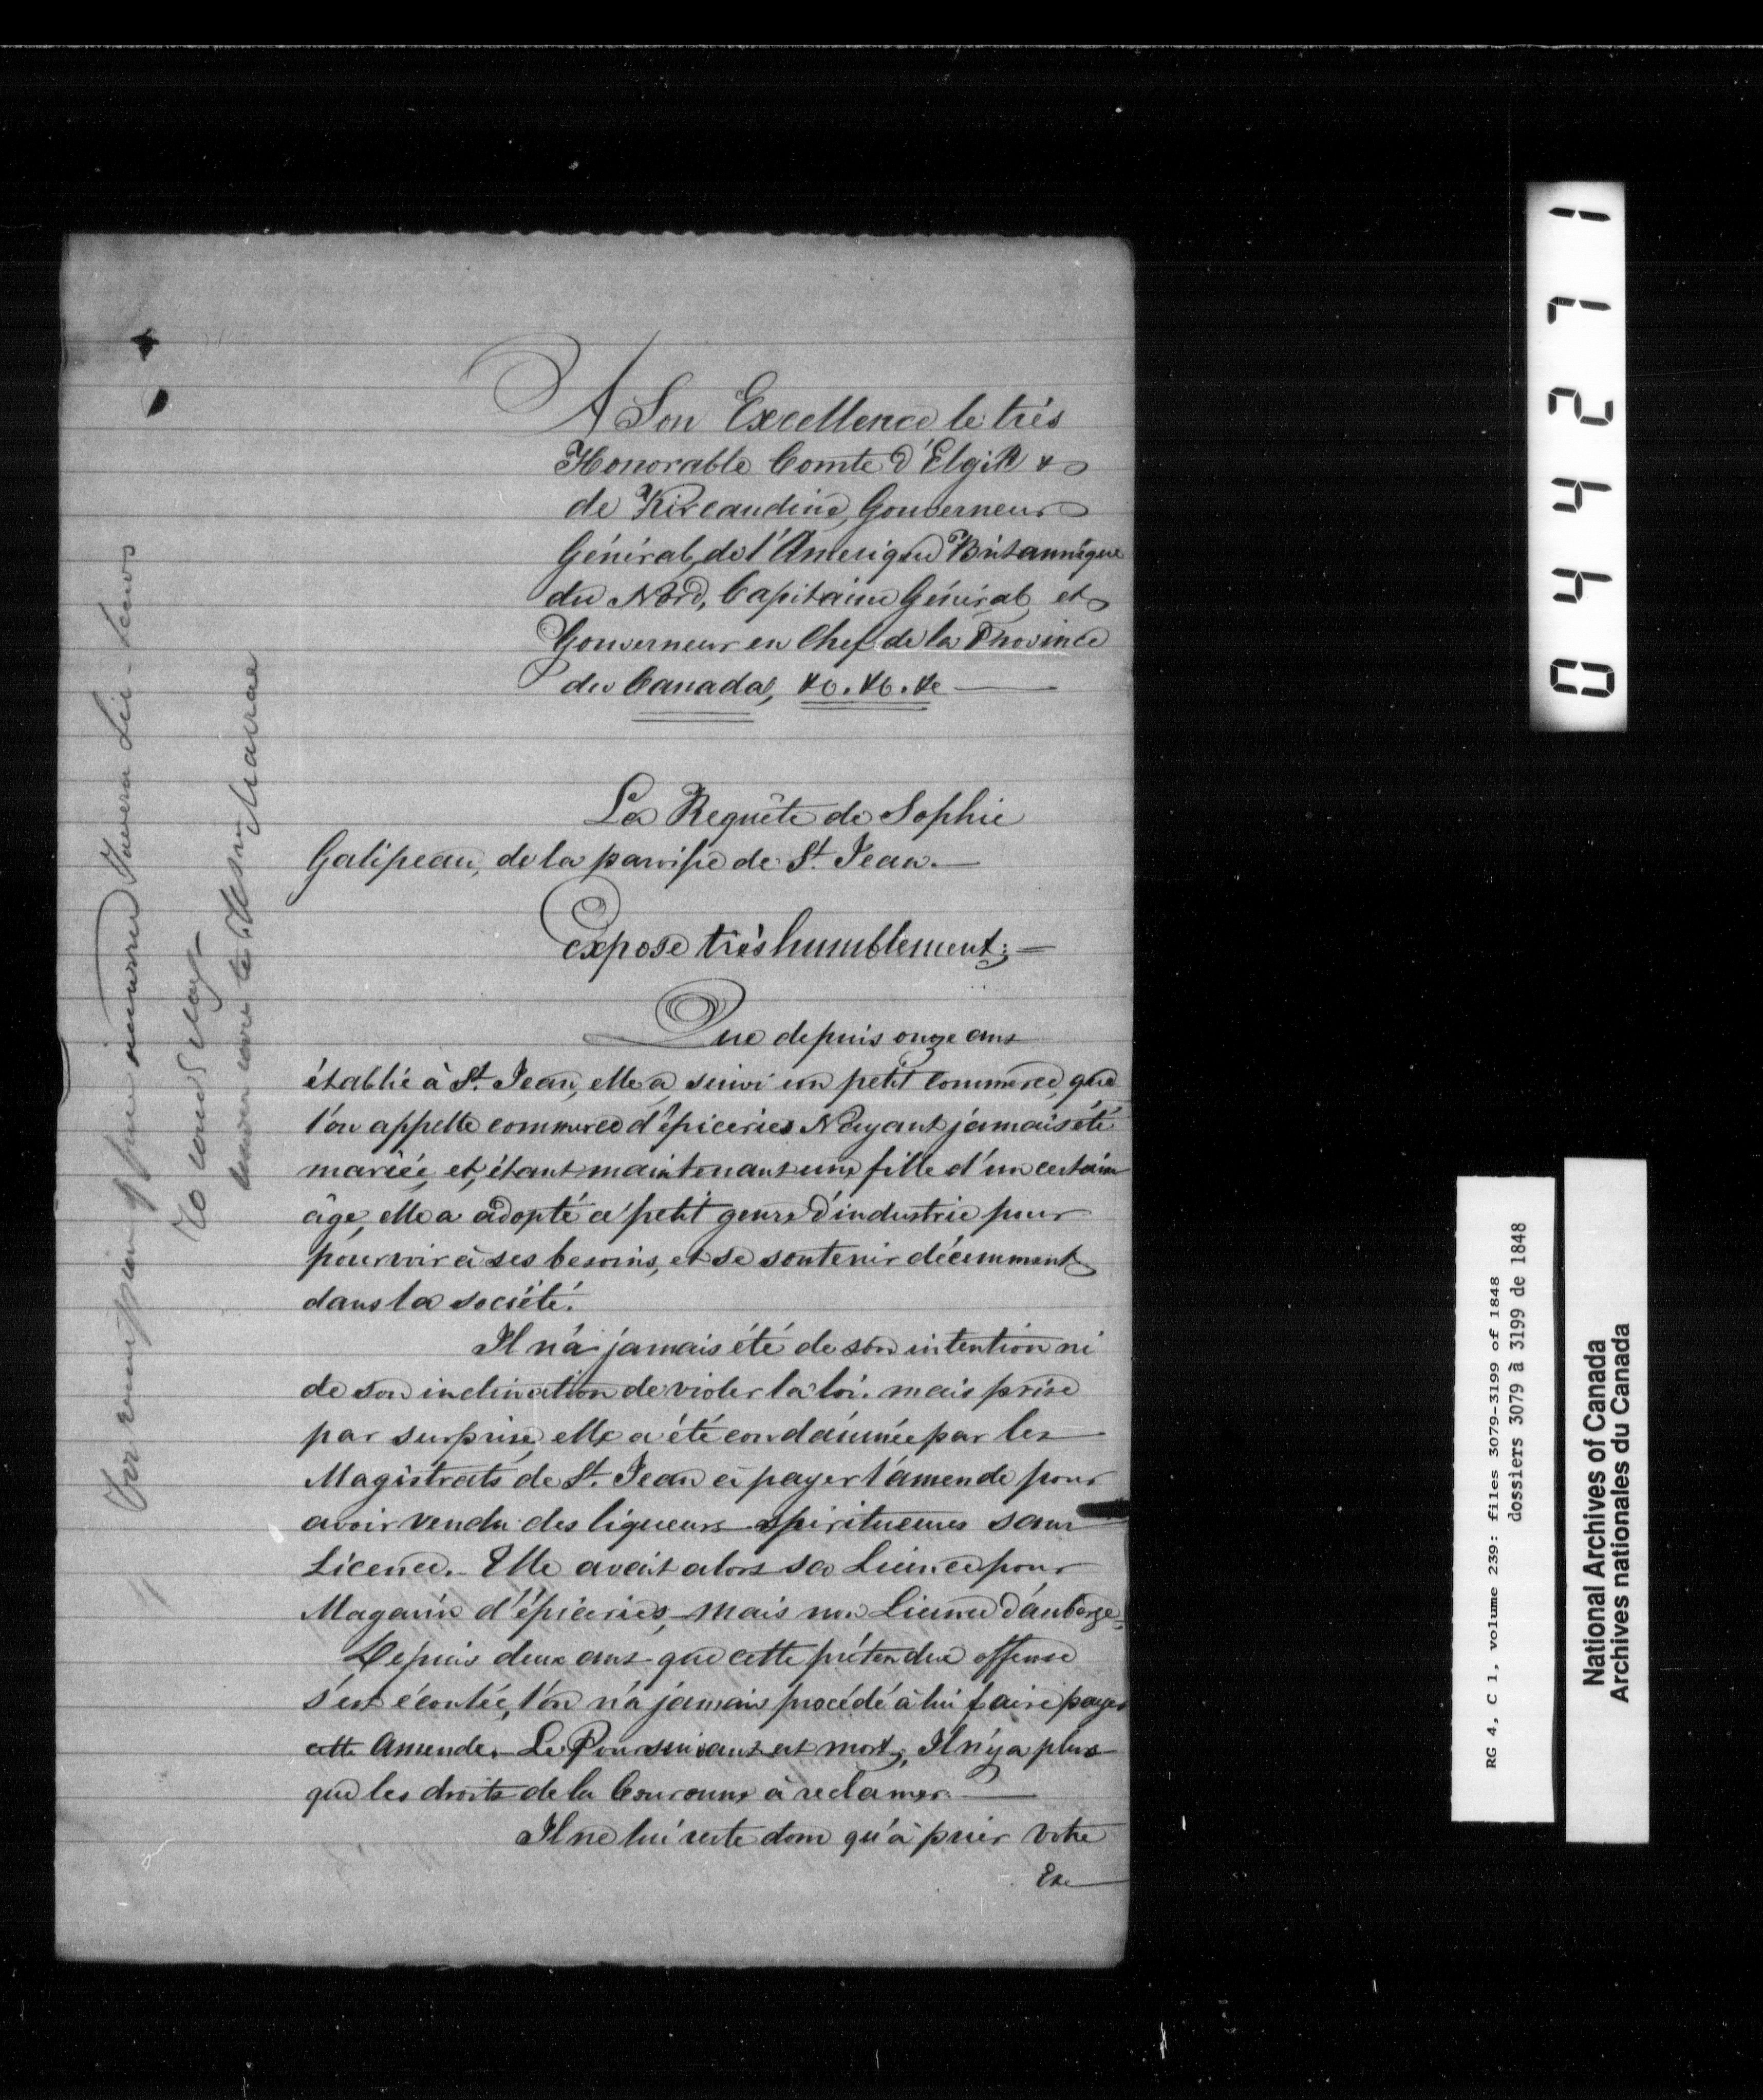 A Son Excellence le très
Honorable Comte d'Elgin &
de Kircaudine, Gouverneur
Général, de l'Amerique Britannique
du Nord, Capitaine Général, et
Gouverneur en Chef de la Province
du Canada, &c. &c. &c
La Requête de Sophie
Galipeau, de la paroisse de St. Jean.—
Expose très humblement;—
Que depuis onze ans
établie à St. Jean, elle a suivi un petit commerce, que
l'on appelle commerce d'épiceries N'ayant jamais été
mariée, et, étant maintenant une fille d'un certain
âge, elle a adopté ce petit genre d'industrie pour
pourvoir à ses besoins, et se soutenir décemment
dans la société.
Il n'a jamais été de son intention ni
de son inclination de violer la loi. mais prise
par surprise, elle a été condamnée par les
Magistrats de St. Jean à payer l'amende pour
avoir vendu des liqueurs spiritueuses sans
Licence. Elle avait alors sa Licence pour
Magasin d'épiceries, mais non Licence d'auberge.
Depuis deux ans que cette prétendue offense
s'est écoulée, l'on n'a jamais procédé à lui faire payer
cette Amende. Le Poursuivant est mort; Il n'y a plus
que les droits de la Couronne à réclamer.—
Il ne lui reste donc qu'à prier Votre
Exc
for remission of fine incurred Tavern Lic-
044271
RG 4, C 1, volume 239: files 3079-3199 of 1848
dossiers 3079 à 3199 de 1848
National Archives of Canada
Archives nationales du Canada